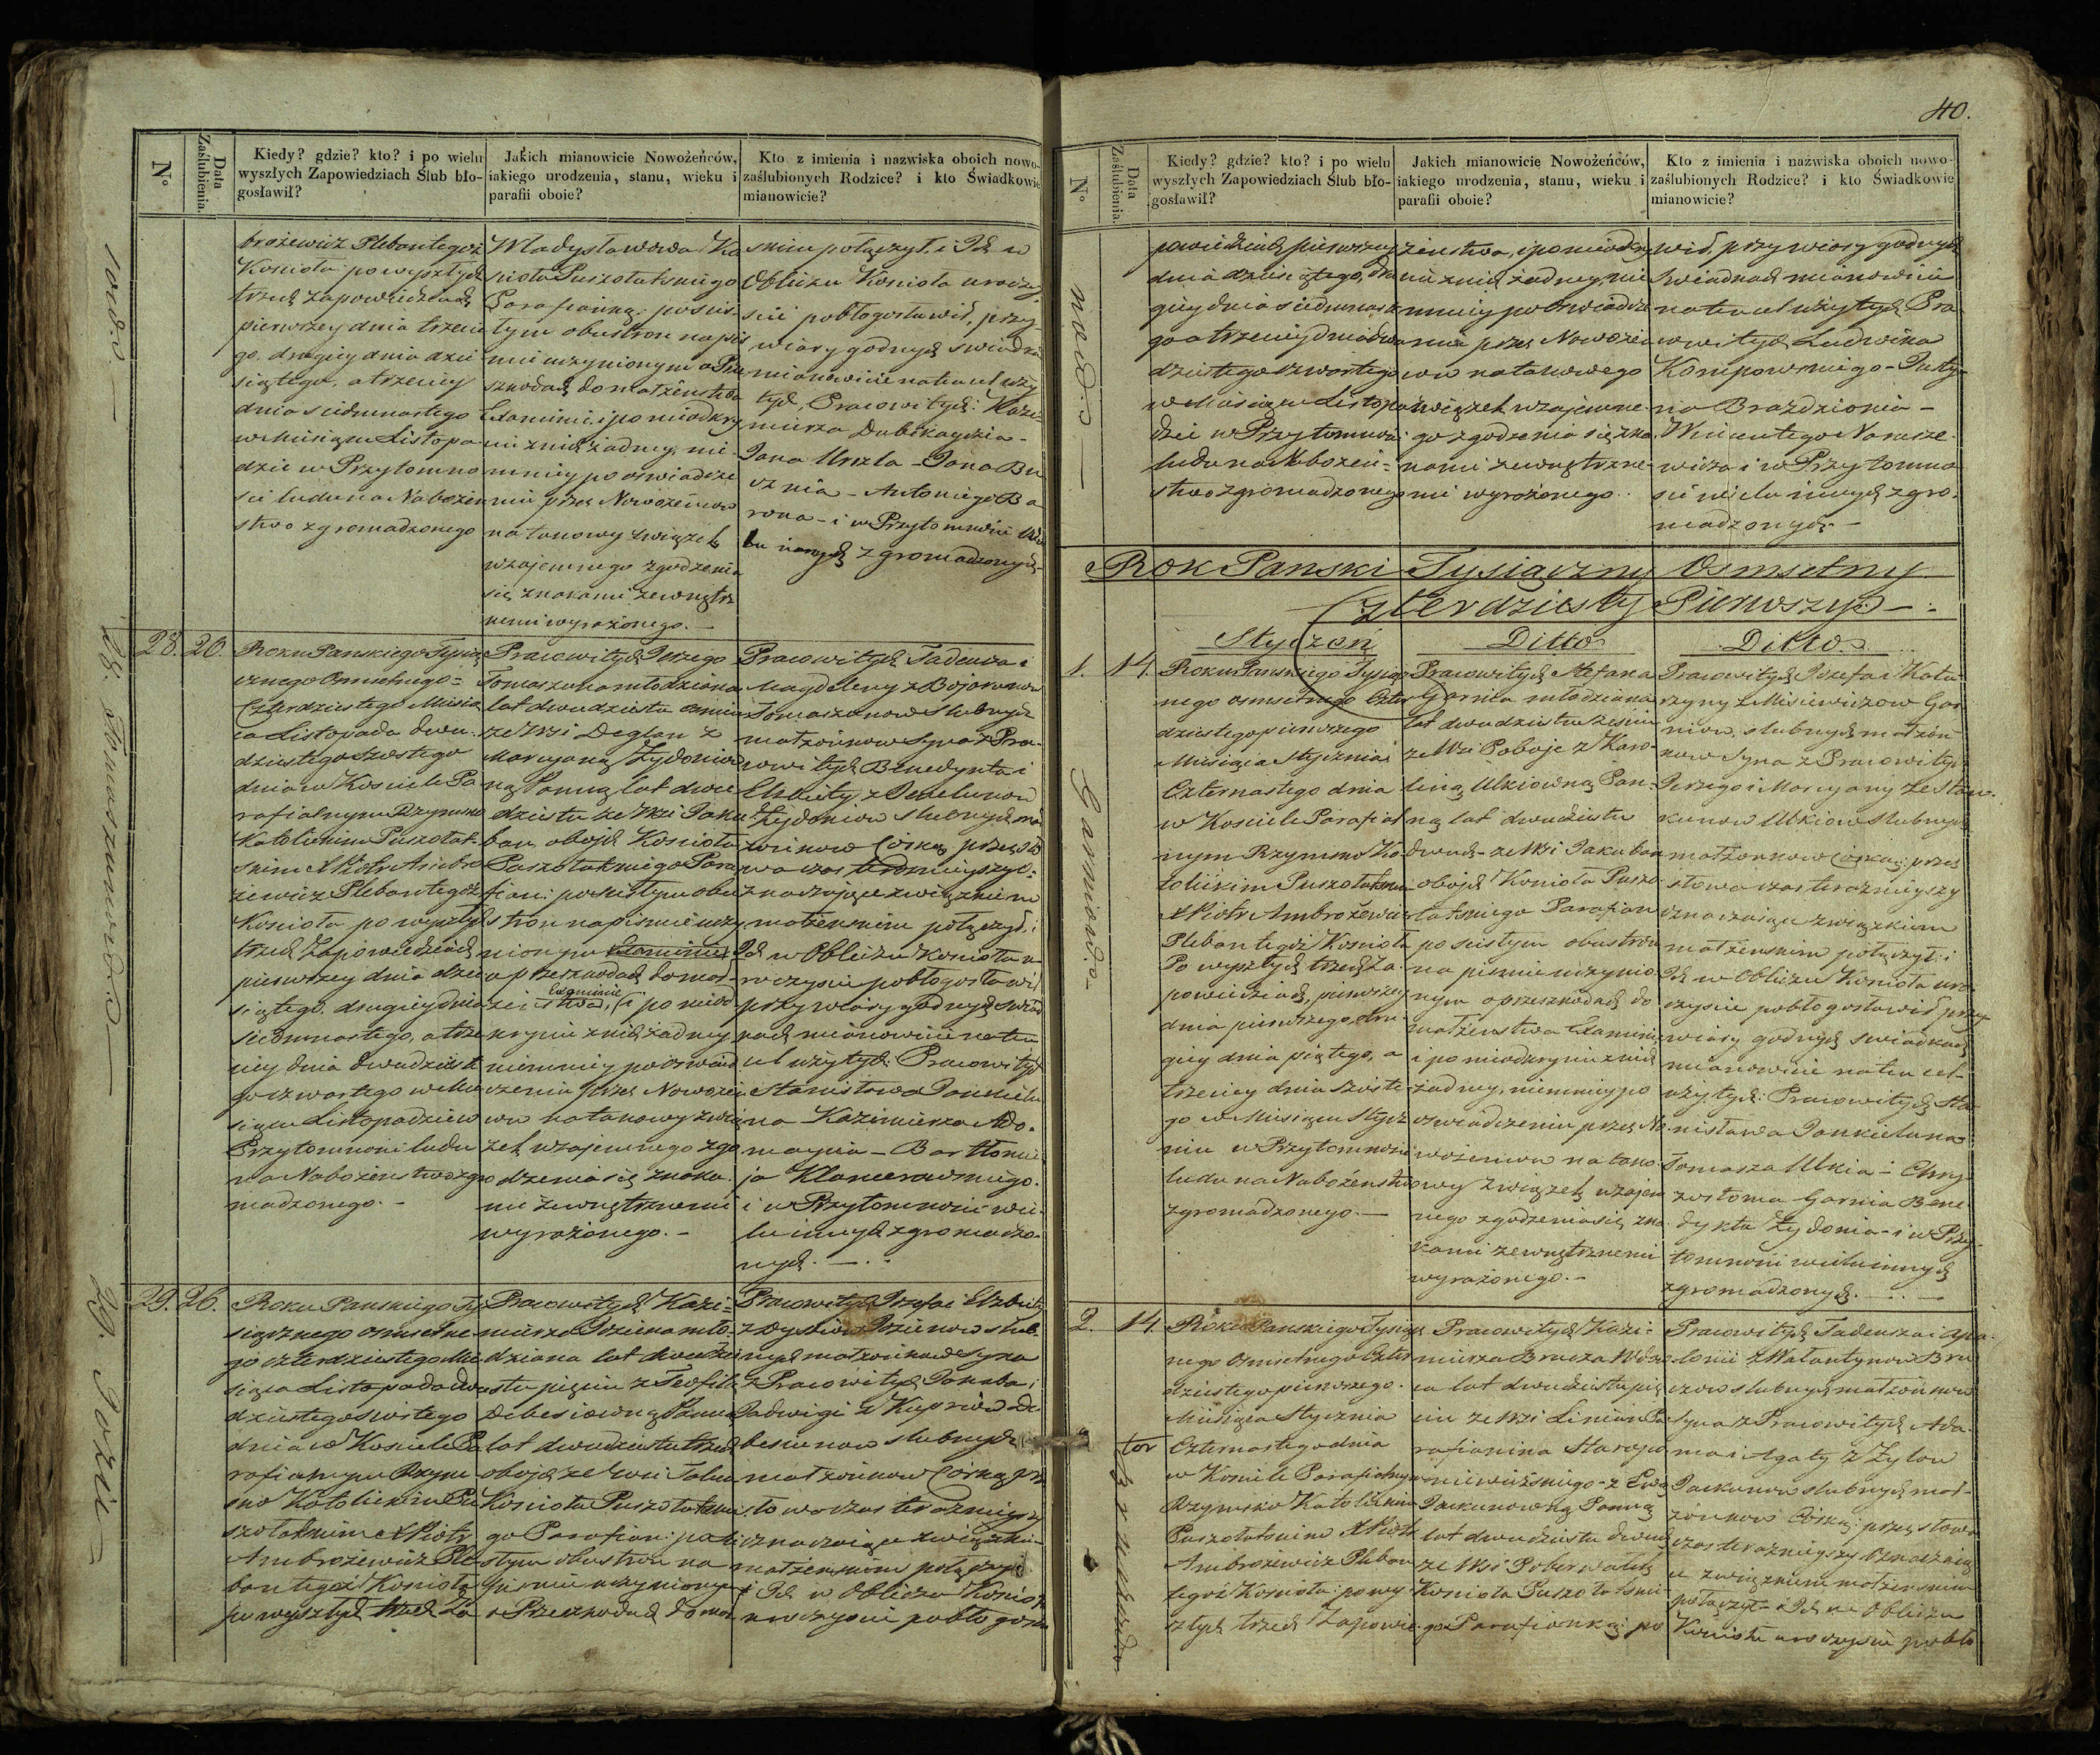 N°
Data Zaślubienia.
Kiedy? gdzie? kto? i po wielu
wyszłych Zapowiedziach Ślub bło-
gosławił?
Jakich mianowicie Nowożeńców,
iakiego urodzenia, stanu, wieku i
parafii oboie?
Kto z imienia i nazwiska oboich nowo-
zaślubionych Rodzice? i kto Świadkowie
mianowicie?
brożewicz Pleban tegoż
Kościoła po wyszłych
trzech zapowiedziach
pierwszey dnia trzecie
go, drugiey dnia dzie
siątego, a trzeciey
dnia siedmnastego
w Miesiącu Listopa
dzie w Przytomno
ści ludu na Nabożeń
stwo zgromadzonego
Parafianką; po ściś-
tym obustron napiś
mie uczynionym o Prze
szkodach do małżeństwa
mniey po oświadcze
niu przez Nowożeńcow
na takowy związek
wzajemnego zgodzenia
się znakami zewnętrz
nemi wyrażonego.
Obliczu Kościoła uroczy
ście pobłogosławił, przy
wiary godnych Swiadka
mianowicie na ten cel uży
tych, Pracowitych: Kazi-
rona - i w Przytomności Wie
lu innych zgromadzonych
28.
26.
Roku Panskiego Tysią
cznego Osmsetnego
Czterdziestego Miesią
ca Listopada dwu-
dziestego szostego
dnia w Kosciele Pa
rafialnym Rzymsko
Katolickim Puszołat-
skim X Piotr Ambro
żewicz Pleban tegoż
Kościoła po wyszłych
trzech Zapowiedziach
pierwszey dnia dzie
siątego, drugiey dnia
siedmnastego, a trze
ciey dnia dwudzieste
go czwartego w Mie
siącu Listopadzie w
Przytomności ludu
na Nabożeństwo zgro
madzonego. -
Pracowitych Jerzego
Tomaszuna młodziana
lat dwudziestu
ze Wsi Deglan z
Maryanną Żydoniow
ną Panną lat dwu
dziestu ze Wsi Jaku
ban oboych Kościoła
Puszołatskiego Para
fian: po ścisłym obu
stron na piśmie uczy
nionym
o przeszkodach do mał-
żeństwa, i po nieod
kryciu z nich żadney
niemniey po oświad
czeniu przez Nowożeń
cow na takowy zwią
zek wzajemnego zgo
dzenia się znaka
mi zewnętrznemi
wyrażonego. -
Pracowitych Tadeusza i
Magdaleny z Bojorunow
Tomaszunow Slubnych
małżonkow Syna z Pra-
cowitych Benedykta i
Elżbiety z
Żydoniow slubnych mał
żonkow Córką przez sło
wa czas teraznieyszy
znaczające związkiem
małżenskim połączył i
Ich w Obliczu Kościoła u-
roczyscie pobłogosławił
przy wiary godnych Swiad
kach mianowicie na ten
cel użytych: Pracowitych
Stanisława Jankielu
na Kazimierza Ado-
maycia - Bartłomie
ja Klamerowskiego
i w Przytomności wie-
lu innych zgromadzo-
nych. -
28. Tomaszunow
29.
26.
Roku Panskiego Ty
siącznego osmsetne
go czterdziestego Mie
siąca Listopada dwu
dziestego szostego
dnia w Kosciele Pa
rafialnym Rzym
sko Katolickim Pu
szołatskim X Piotr
Ambrożewicz Ple
ban tegoż Kościoła
po wyszłych trzech Za
Pracowitych Kazi-
mierza Jozuna mło-
dziana lat dwudzie
stu pięciu z Teofilą
Debesiowną Panną
lat dwudziestu trzech
oboych ze Wsi
Kościoła Puszołatskie
go Parafian: po ści
słym obustron na
piśmie uczynionym
o Przeszkodach do mał
Pracowitych Jozefa i Elżbiety
nych małżonkow Syna
z Pracowitych Jakuba i
Jadwigi z Kupriow De
besiunow slubnych
małżonkow Córką prz
słowa czas teraznieyszy
znaczające związki
małżenskim połączył
i Ich w Obliczu Kościoł
uroczyscie pobłogosła
40.
N°
Data Zaślubienia.
Kiedy? gdzie? kto? i po wielu
wyszłych Zapowiedziach Ślub bło-
gosławił?
Jakich mianowicie Nowożeńców,
iakiego urodzenia, stanu, wieku i
parafii oboie?
Kto z imienia i nazwiska oboich nowo-
zaślubionych Rodzice? i kto Świadkowie
mianowicie?
powiedziach pierwszey
dnia dziesiątego, dru
giey dnia siedmnaste
go a trzeciey dnia dwu
dziestego czwartego
w Miesiącu Listopa
dzie w Przytomności
ludu na Nabożeń-
stwo zgromadzonego
żeństwa, i po nieodkry
ciu z nich żadney, nie
mniey po oświadcze
niu przez Nowożeń
cow na takowego
związek wzajemne-
go zgodzenia się zna
kami zewnętrzne-
mi wyrażonego.
wił, przy wiary godnych
Swiadkach mianowicie
na ten cel użytych Pra
cowitych Ludwika
wicza i w Przytomno
ści wielu innych zgro-
madzonych. -
Rok Panski Tysiączny Osmsetny
Czterdziesty Pierwszy. -
Styczeń Ditto Ditto
1.
14.
Roku Panskiego Tysiącz
nego osmsetnego Czter
dziestego pierwszego
Miesiąca Stycznia
Czternastego dnia
w Kosciele Parafial
nym Rzymsko Ka
tolickim Puszołatskim
X Piotr Ambrożewicz
Pleban tegoż Kościoła
Po wyszłych trzech Za-
powiedziach, pierwszey
dnia pierwszego, dru-
giey dnia piątego, a
trzeciey dnia szoste-
go w Miesiącu Stycz
niu w Przytomności
ludu na Nabożeństwo
zgromadzonego. -
Pracowitych Stefana
Garnia młodziana
lat dwudziestu sześciu
ze Wsi Poboje z Karo-
liną Ulkiowną Pan-
ną lat dwudziestu
dwuch - ze Wsi Jakuban
oboych Kościoła Puszo-
łatskiego Parafian
po ścisłym obustron
na piśmie uczynio-
nym o przeszkodach do
małżeństwa Examinie
i po nieodkryciu z nich
żadney, niemniey po
oświadczeniu przez No-
wożeńcow na tako-
wy związek wzajem
nego zgodzenia się zna
kami zewnętrznemi
wyrażonego. -
Pracowitych Jozefa i Kata
rzyny z Misiewiczow Gar
niow, slubnych małżon
kow Syna z Pracowitych
Jerzego i Maryany ze Stan-
kunow Ulkiow slubnych
małżonkow Córką; przez
słowa czas teraznieyszy
znaczające związkiem
małżenskim połączył i
Ich w Obliczu Kościoła uro
czyscie pobłogosławił przy
wiary godnych swiadkach
mianowicie na ten cel-
użytych: Pracowitych Sta
nisława Jankieluna
Tomasza Ulkia - Chry-
zostoma Garnia Bene
dykta Żydonia - i w Przy
tomności wielu innych
zgromadzonych. -
2.
14.
Roku Panskiego Tysiącz
nego Osmsetnego Czter
dziestego pierwszego
Miesiąca Stycznia
Czternastego dnia
w Kosciele Parafialnym
Rzymsko Katolickim
Puszołatskim X Piotr
Ambrożewicz Pleban
tegoż Kościoła: po wy-
szłych trzech Zapowie-
Pracowitych Kazi-
mierza Brucza Wdow
ca lat dwudziestu pię
ciu ze Wsi Linian Pa
rafianina Staropo
niewiżskiego - z Ewą
Panną
lat dwudziestu dwuch
ze Wsi
Kościoła Puszołatskie-
go Parafianką; po
Pracowitych Tadeusza i Apo-
lonii z Wałantynow Bru
czow slubnych małżonkow
Syna z Pracowitych Ada-
ma i Agaty z Żyłow
slubnych mał-
żonkow Córką; przez słowa
czas teraznieyszy oznaczają
ce związkiem małżenskim
połączył - i Ich w Obliczu
Kościoła uroczyscie pobło